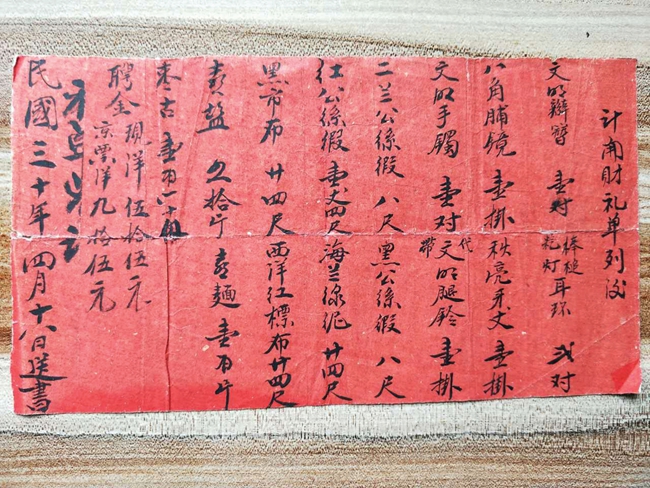 计開财礼单列後
文明联簪 壹对 棒槌乾灯耳环 弍对
八角脯镜 壹掛 秋亮牙丈 壹掛
文明手镯 壹对 代带文明腿铃 壹掛
二兰公絲缎 八尺 黑公絲缎 八尺
红公絲缎 壹丈四尺 海兰线呢 廿四尺
黑市布 廿四尺 西洋红標布 廿四尺
喜盐 五拾斤 喜麵 壹百斤
枣古 壹百二十個
聘金 現洋伍拾伍元 京票洋九拾伍元
民國三十年四月十八日送書